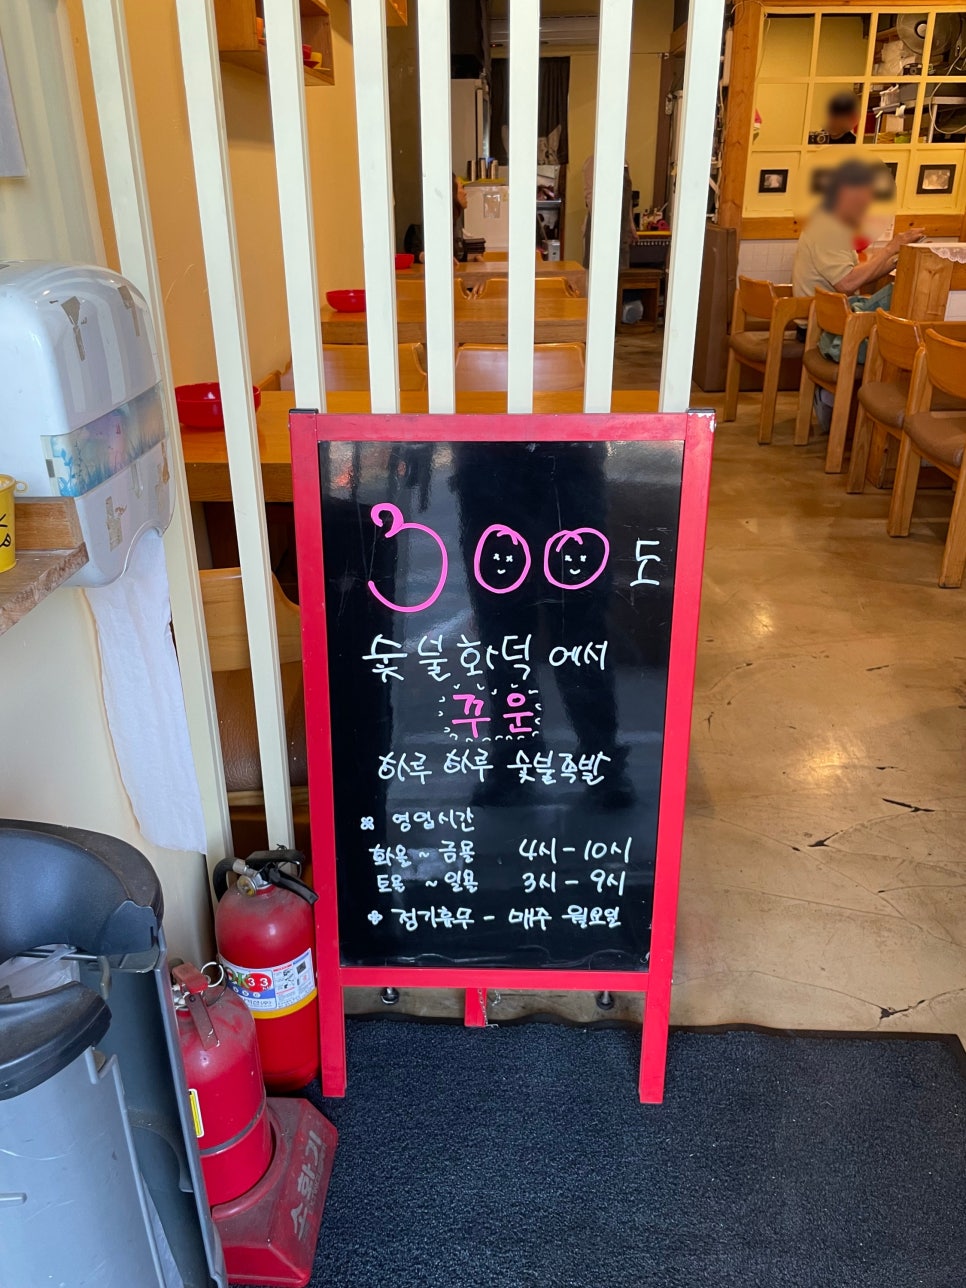 300도
숯불화덕에서
꾸운
하루하루 숯불족발
영업시간
화욜 ~ 금욜 4시 - 10시
토욜 ~ 일욜 3시 - 9시
정기휴무 - 매주 월요일
33
소화기